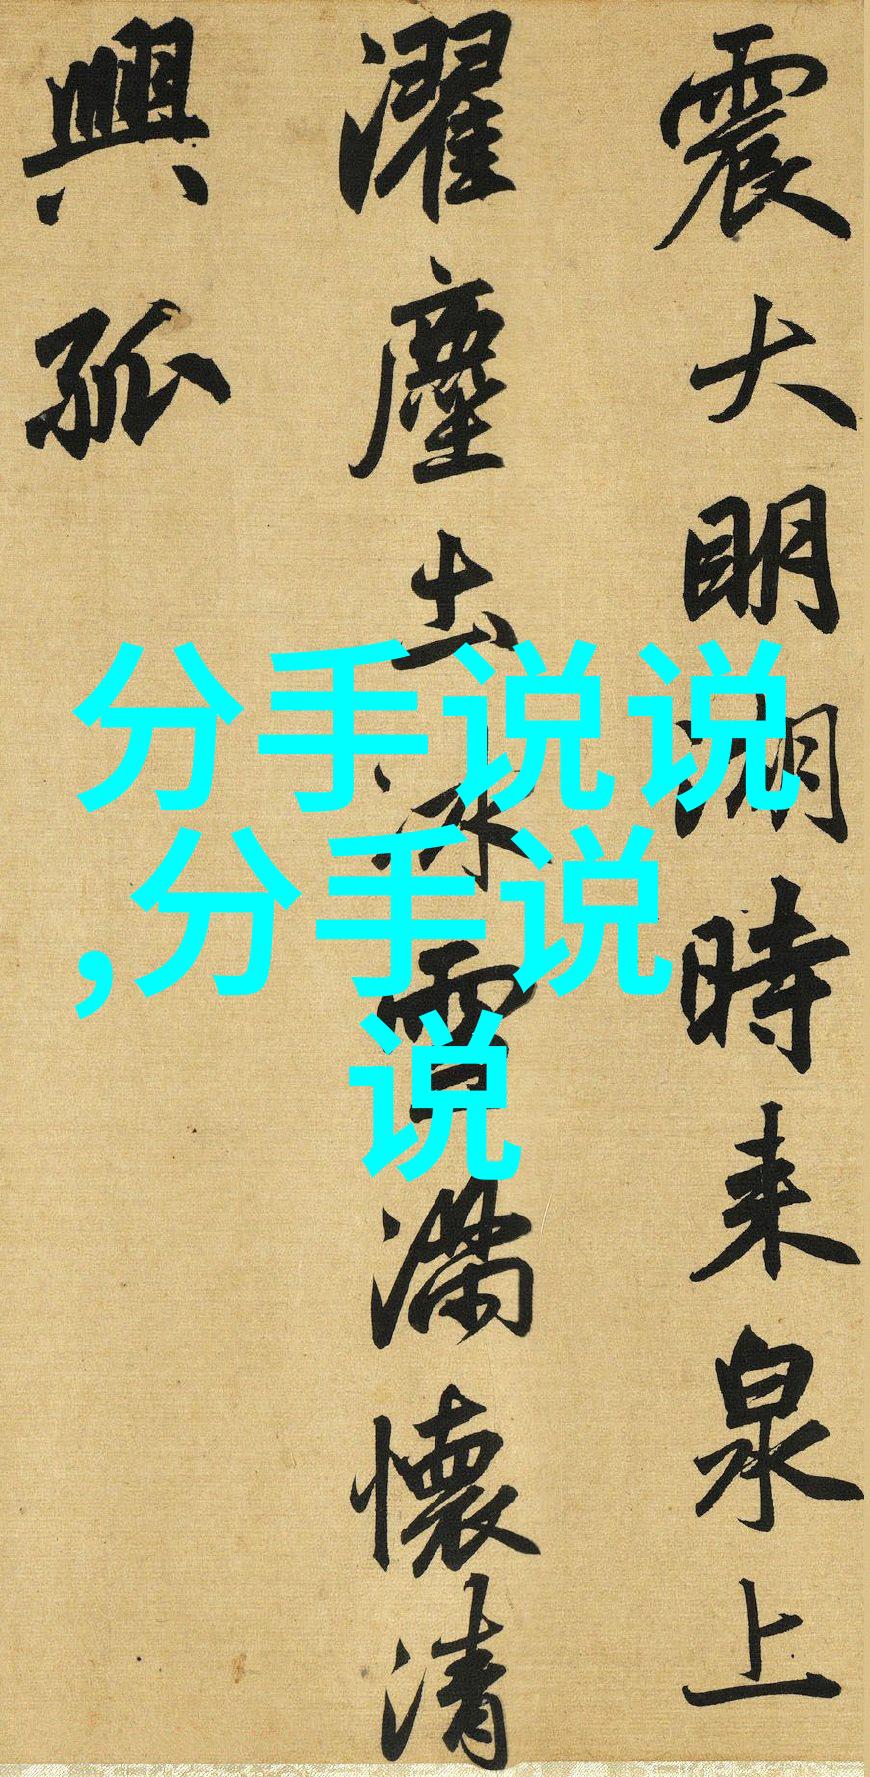 震大明湖時來泉上
濯塵土冰雪滿懷清
興孤
分手说说
,分手说
说